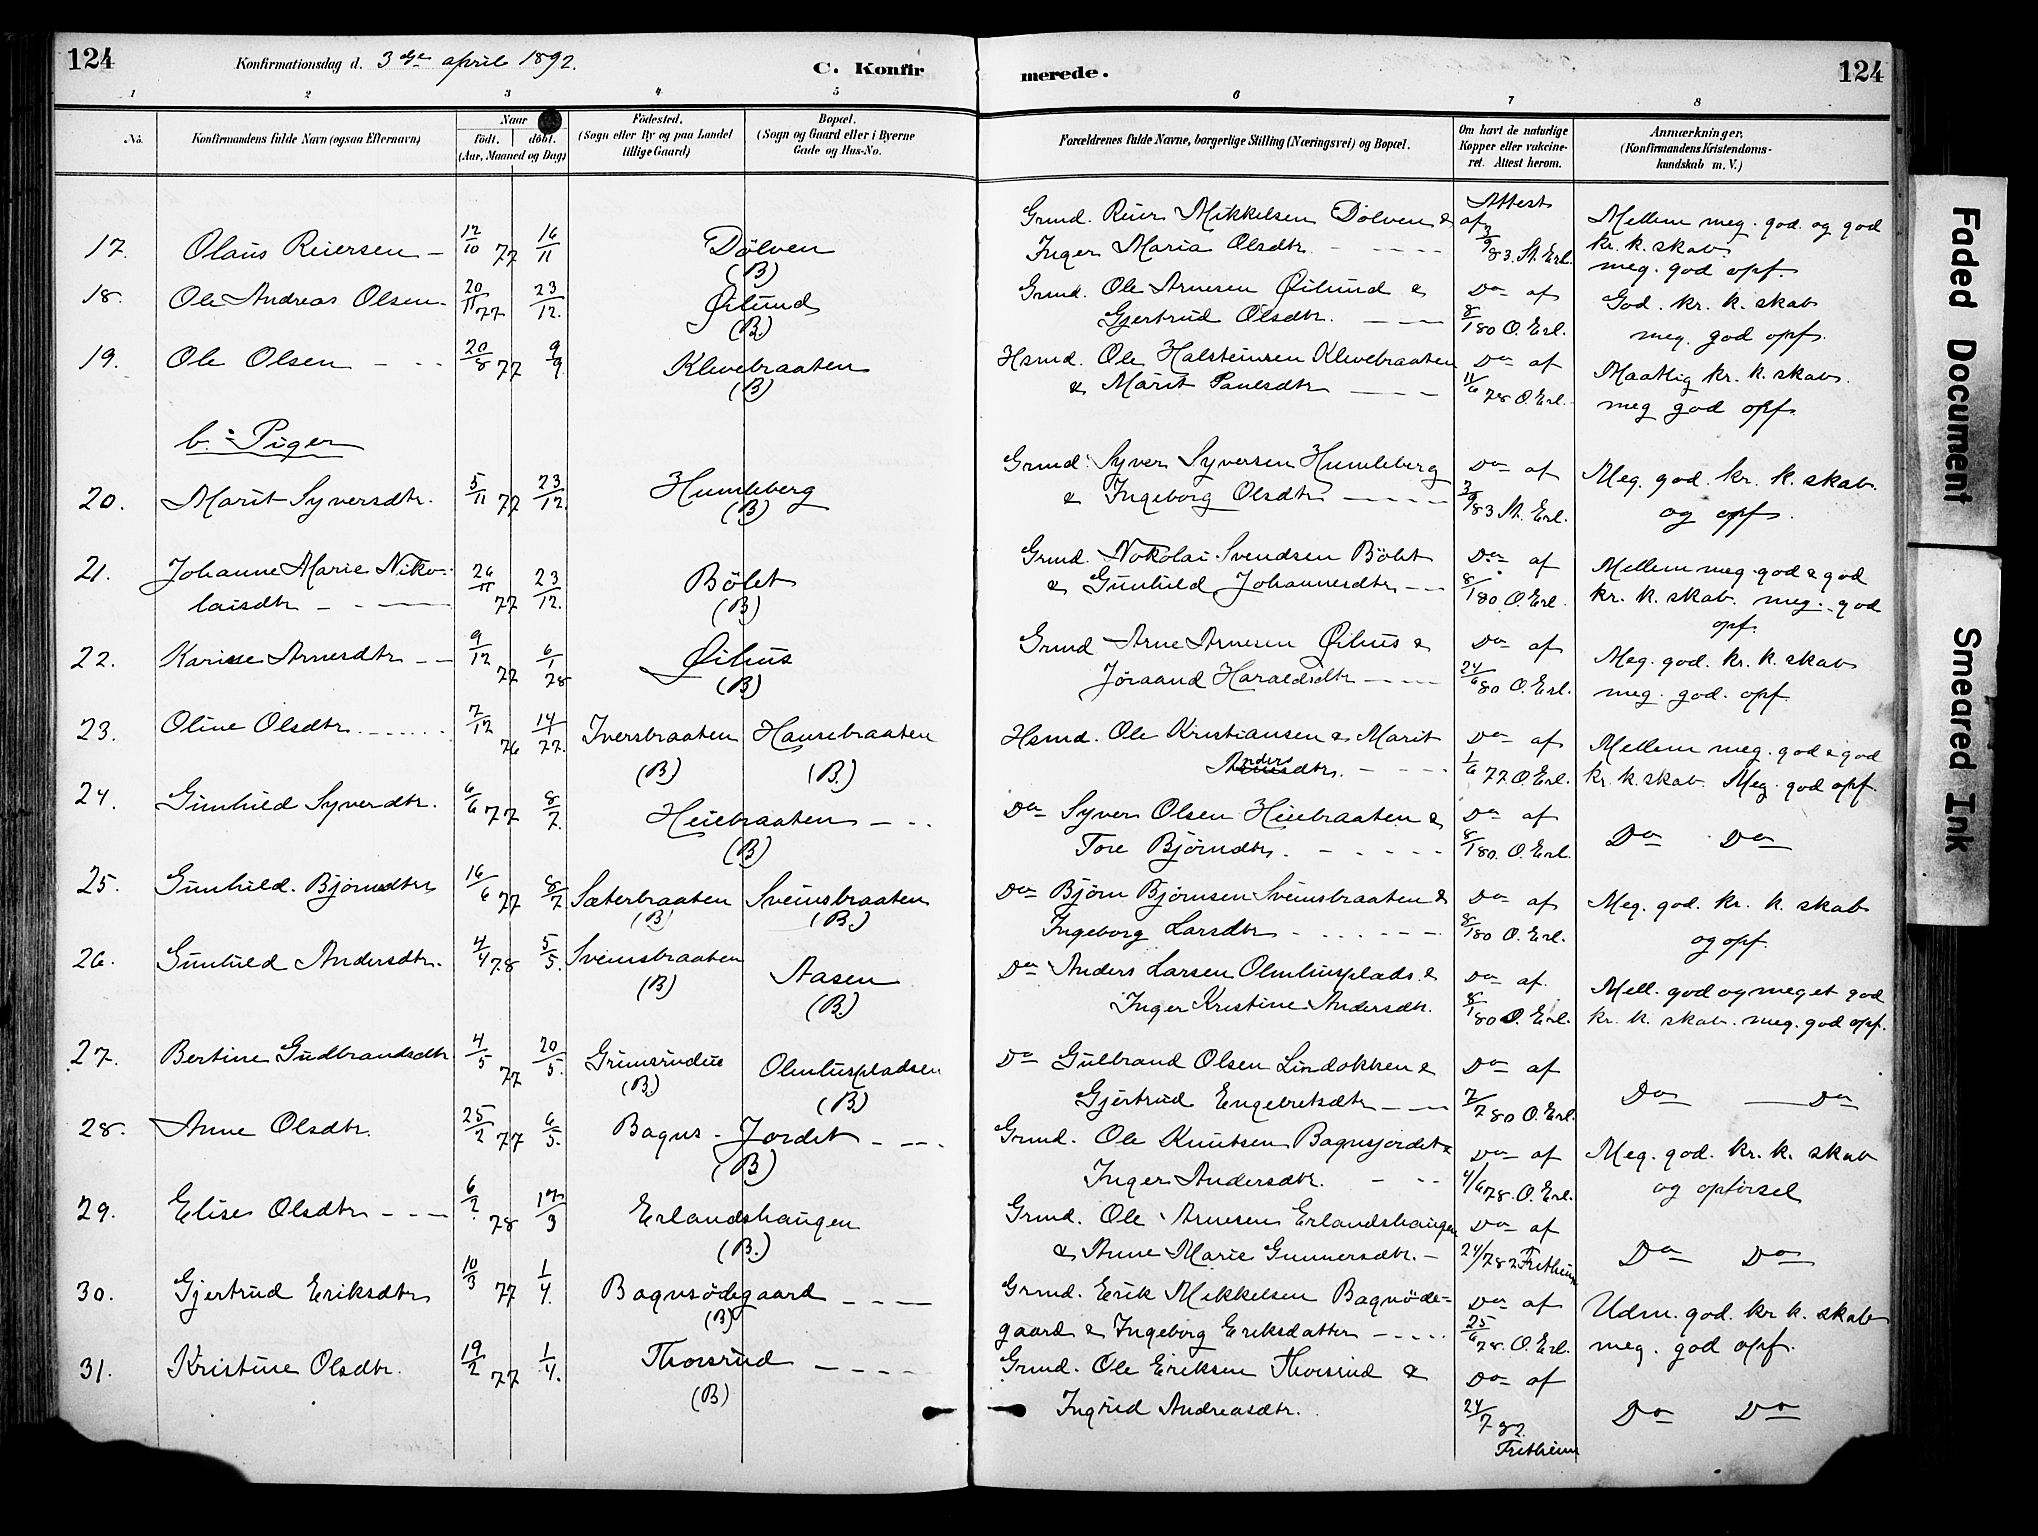 124
Konfirmationsdag d. 3die april 1892.
C. Konfirmerede.
124
1 2 3 4 5 6 7 8
No.
Konfirmandens fulde Navn (ogsaa Efternavn)
Naar
födt. döbt.
(Aar, Maaned og Dag)
Födested.
(Sogn eller By og paa Landet
tillige Gaard)
Bopæl.
(Sogn og Gaard eller i Byerne
Gade og Hus-No.
Forældrenes fulde Navne, borgerlige Stilling (Næringsvei) og Bopæl.
Om havt de naturlige
Kopper eller vakcine-
ret. Attest herom.
Anmærkninger.
(Konfirmandens Kristendoms-
kundskab m. V.)
17. Olaus Reiersen – 12/10 77 16/11 Dölven (B) Grmd. Reier Mikkelsen Dölven &
Inger Maria Olsdtr. Attest af 3/9 83. St. Erl. Mellem meg. god. og god
kr. k. skab
meg. god opf.
18. Ole Andreas Olsen. 20/11 77 23/12. Øilund (B.) Grmd. Ole Arnesen Øilund &
Gjertrud Olsdtr. Do af 8/1 80 O. Erl. God. kr. k. skab
meg. god opf.
19. Ole Olsen 20/8 77 9/9 Klevebraaten (B) Hsmd. Ole Halsteinsen Klevebraaten
& Marit Paulsdtr Do af 11/6 78 O. Erl. Maatlig kr. k. skab.
meg god opf.
b. Piger
20. Marit Syversdtr. 5/11 77 23/12. Humleberg (B) Grmd. Syver Syversen Humleberg
& Ingeborg Olsdtr Do af 3/9 83 St. Erl. Meg. god. kr. k. skab.
og opf.
21. Johanne Marie Niko-
laisdtr 26/11 77 23/12. Bölet (B) Grmd. Nokolai Svendsen Bölet
& Gunhild Johannesdtr Do af 8/1 80. O. Erl. Mellem meg. god & god
kr. k. skab. meg. god
opf.
22. Karine Arnesdtr 9/12 77 6/1 78 Øihus (B) Grmd Arne Arnesen Øihus &
Jöraand Haraldsdtr Do af 24/6 80 O. Erl. Meg. god. kr. k. skab
meg. god. opf.
23. Oline Olsdtr. 7/12 76 14/1 77. Iversbraaten (B) Hansebraaten (B.) Hsmd. Ole Kristiansen & Marit
Andersdtr. Do af 1/6 77 O. Erl. Mellem meg. god & god
kr. k. skab. Meg. god opf.
24. Gunhild Syverdtr. 6/6 77 8/7. Heiebraaten (B) Do Syver Olsen Heiebraaten &
Tore Björndtr. Do af 8/1 80. O. Erl. Do Do
25. Gunhild. Björnsdtr 16/6 77 8/7. Sæterbraaten (B) Sveinsbraaten (B.) Do Björn Björnsen Sveinsbraaten &
Ingeborg Larsdtr Do af 8/1 80 O. Erl. Meg. god. kr. k. skab
og opf.
26. Gunhild Andersdtr. 4/4 78 5/5. Sveinsbraaten (B) Aasen (B.) Do Anders Larsen Olmhusplads. &
Inger Kristine Andersdtr. Do af. 8/1 80 O. Erl. Mell. god og meget god
kr. k. skab. meg. god opf.
27. Bertine Gudbrandsdtr 4/5 77 20/5. Grimsrudeie (B) Olmhuspladsen (B) Do Gulbrand Olsen Lindokken &
Gjertrud Engebretsdtr Do af 7/7 80 O. Erl. Do Do
28. Anne Olsdtr. 25/2 77 6/5. Bagns-Jordet (B) Grmd. Ole Knutsen Bagnsjordet &
Inger Andersdtr. Do af 4/6 78. O. Erl. Meg. god. kr. k. skab
og opförsel
29. Elise Olsdtr 6/2. 78 17/3 Erlandshaugen (B.) Grmd. Ole Arnesen Erlandshaugen
& Anne Marie Gunnersdtr. Do af 24/7 82 Fritheim Do Do
30. Gjertrud Eriksdtr 10/3 77 1/4. Bagnsödegaard (B) Grmd. Erik Mikkelsen Bagnöde-
gaard & Ingeborg Eriksdatter Do af 25/6 78. O. Erl. Udm. god. kr k. skab
meg. god opf.
31. Kristine Olsdtr. 19/2 77 1/4. Thorsrud (B) Grmd. Ole Eriksen Thorsrud &
Ingrid Andreasdtr. Do af 24/7 82. Fritheim Do Do
Faded Document
Smeared Ink